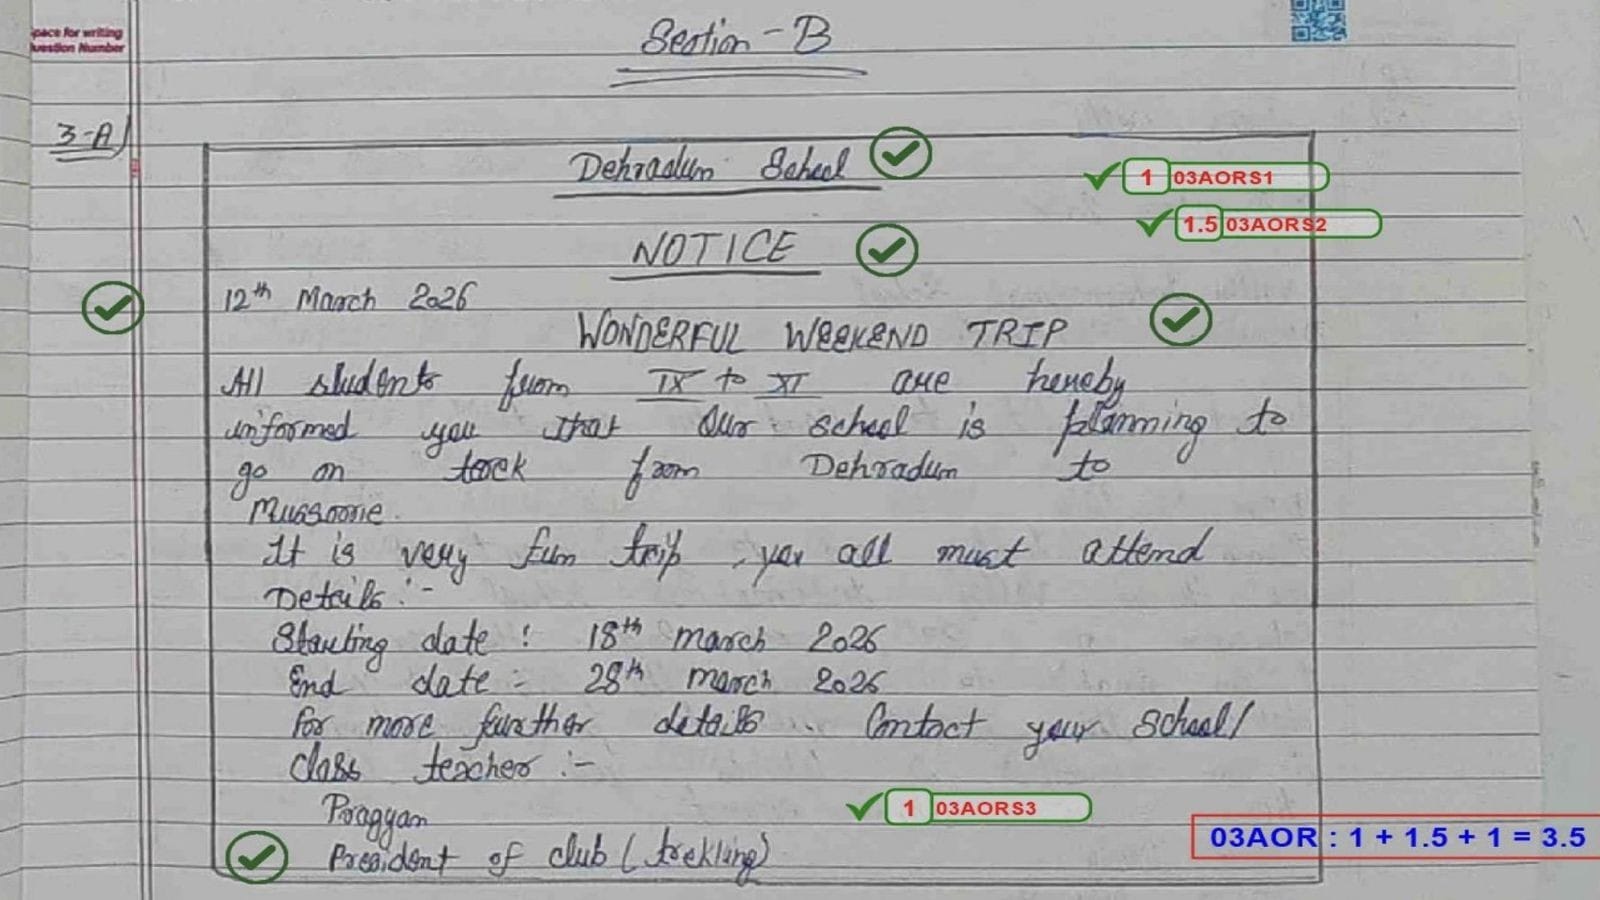 Space for writing
Question Number
Section - B
3-A
Dehradum School
1 03AORS1
1.5 03AORS2
NOTICE
12th March 2026
WONDERFUL WEEKEND TRIP
All students from IX to XI are hereby
informed you that Our school is planning to
go on trek from Dehradum to
Mussoorie.
It is very fun trip, you all must attend
Details :-
Starting date : 18th march 2026
End date :- 28th march 2026
For more further details . Contact your School/
class teacher :-
Pragyan
1 03AORS3
President of club (trekking)
03AOR : 1 + 1.5 + 1 = 3.5